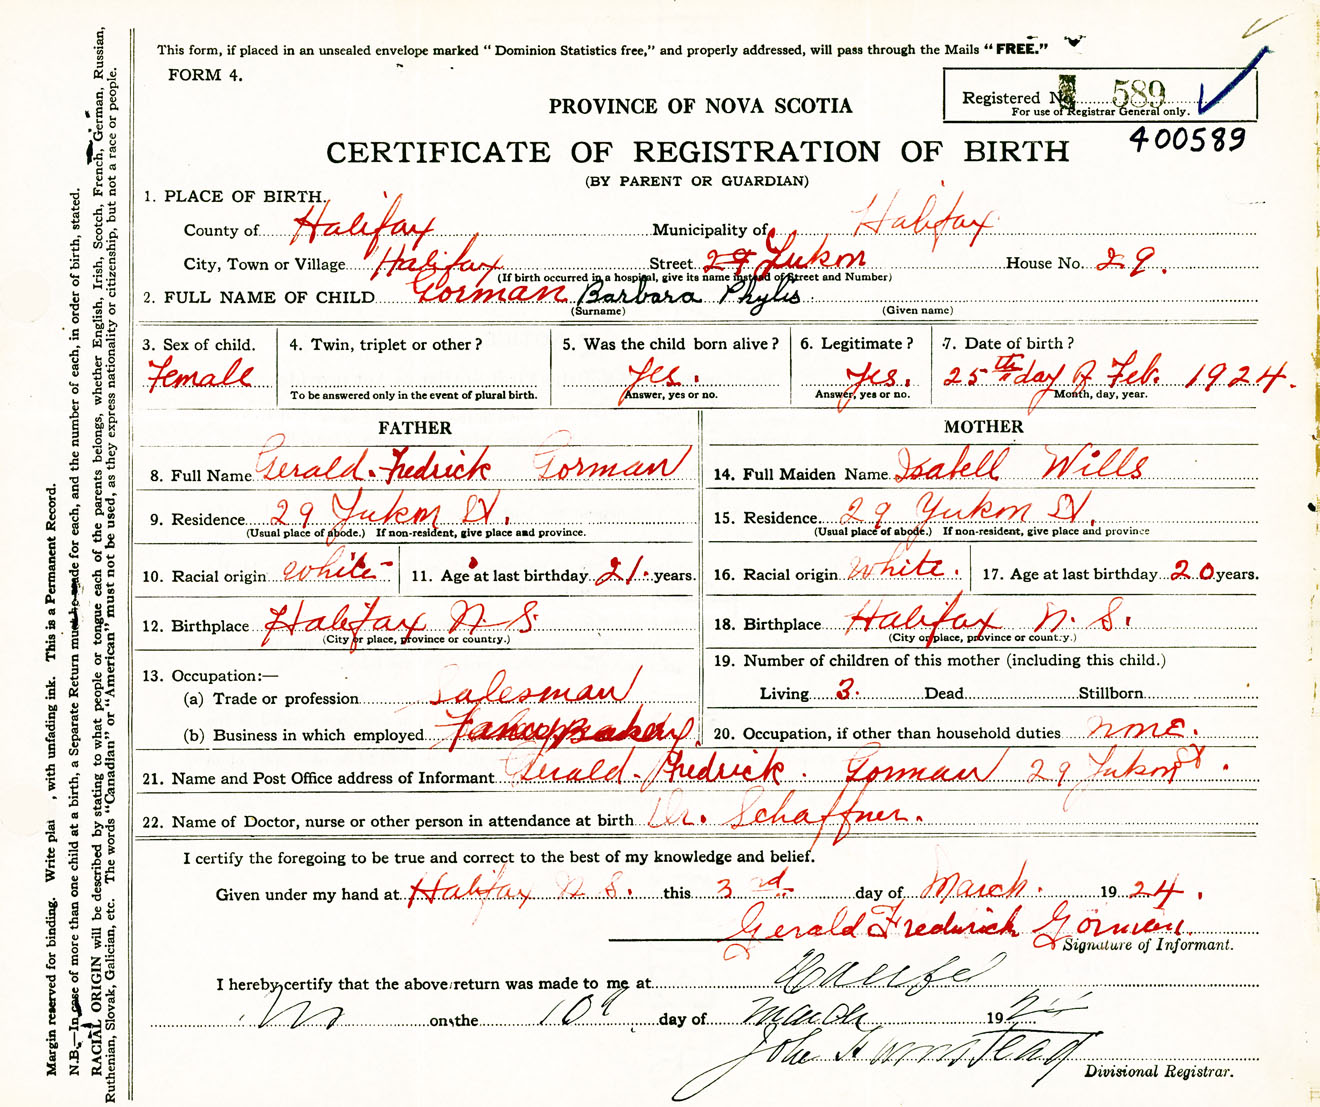 This form, if placed in an unsealed envelope marked "Dominion Statistics free," and properly addressed, will pass through the Mails "FREE."
FORM 4.
Registered No. 589
For use of Registrar General only.
PROVINCE OF NOVA SCOTIA
400589
CERTIFICATE OF REGISTRATION OF BIRTH
(BY PARENT OR GUARDIAN)
1. PLACE OF BIRTH.
County of Halifax Municipality of Halifax
City, Town or Village Halifax Street 29 Yukon House No. 29.
(If birth occurred in a hospital, give its name instead of Street and Number)
2. FULL NAME OF CHILD Gorman Barbara Phylis
(Surname) (Given name)
3. Sex of child. 4. Twin, triplet or other? 5. Was the child born alive? 6. Legitimate? 7. Date of birth?
Female Yes. Yes. 25th day of Feb. 1924.
To be answered only in the event of plural birth. Answer, yes or no. Answer, yes or no. Month, day, year.
FATHER
8. Full Name Gerald Fredrick Gorman
9. Residence 29 Yukon St.
(Usual place of abode.) If non-resident, give place and province.
10. Racial origin white 11. Age at last birthday 21. years.
12. Birthplace Halifax N. S.
(City or place, province or country.)
13. Occupation:—
(a) Trade or profession Salesman
(b) Business in which employed Bakery
MOTHER
14. Full Maiden Name Isabell Wills
15. Residence 29 Yukon St.
(Usual place of abode.) If non-resident, give place and province
16. Racial origin white. 17. Age at last birthday 20 years.
18. Birthplace Halifax N. S.
(City or place, province or country.)
19. Number of children of this mother (including this child.)
Living 3. Dead Stillborn
20. Occupation, if other than household duties none.
21. Name and Post Office address of Informant Gerald Fredrick Gorman 29 Yukon St.
22. Name of Doctor, nurse or other person in attendance at birth Dr. Schaffner.
I certify the foregoing to be true and correct to the best of my knowledge and belief.
Given under my hand at Halifax N. S. this 3rd day of March. 1924.
Gerald Fredrick Gorman.
Signature of Informant.
I hereby certify that the above return was made to me at Halifax
on the 10th day of March 19
John
Divisional Registrar.
Margin reserved for binding. Write , with unfading ink. This is a Permanent Record.
N.B.—In case of more than one child at a birth, a Separate Return must be made for each, and the number of each, in order of birth, stated.
RACIAL ORIGIN will be described by stating to what people or tongue each of the parents belongs, whether English, Irish, Scotch, French, German, Russian,
Ruthenian, Slovak, Galician, etc. The words "Canadian" or "American" must not be used, as they express nationality or citizenship, but not a race or people.